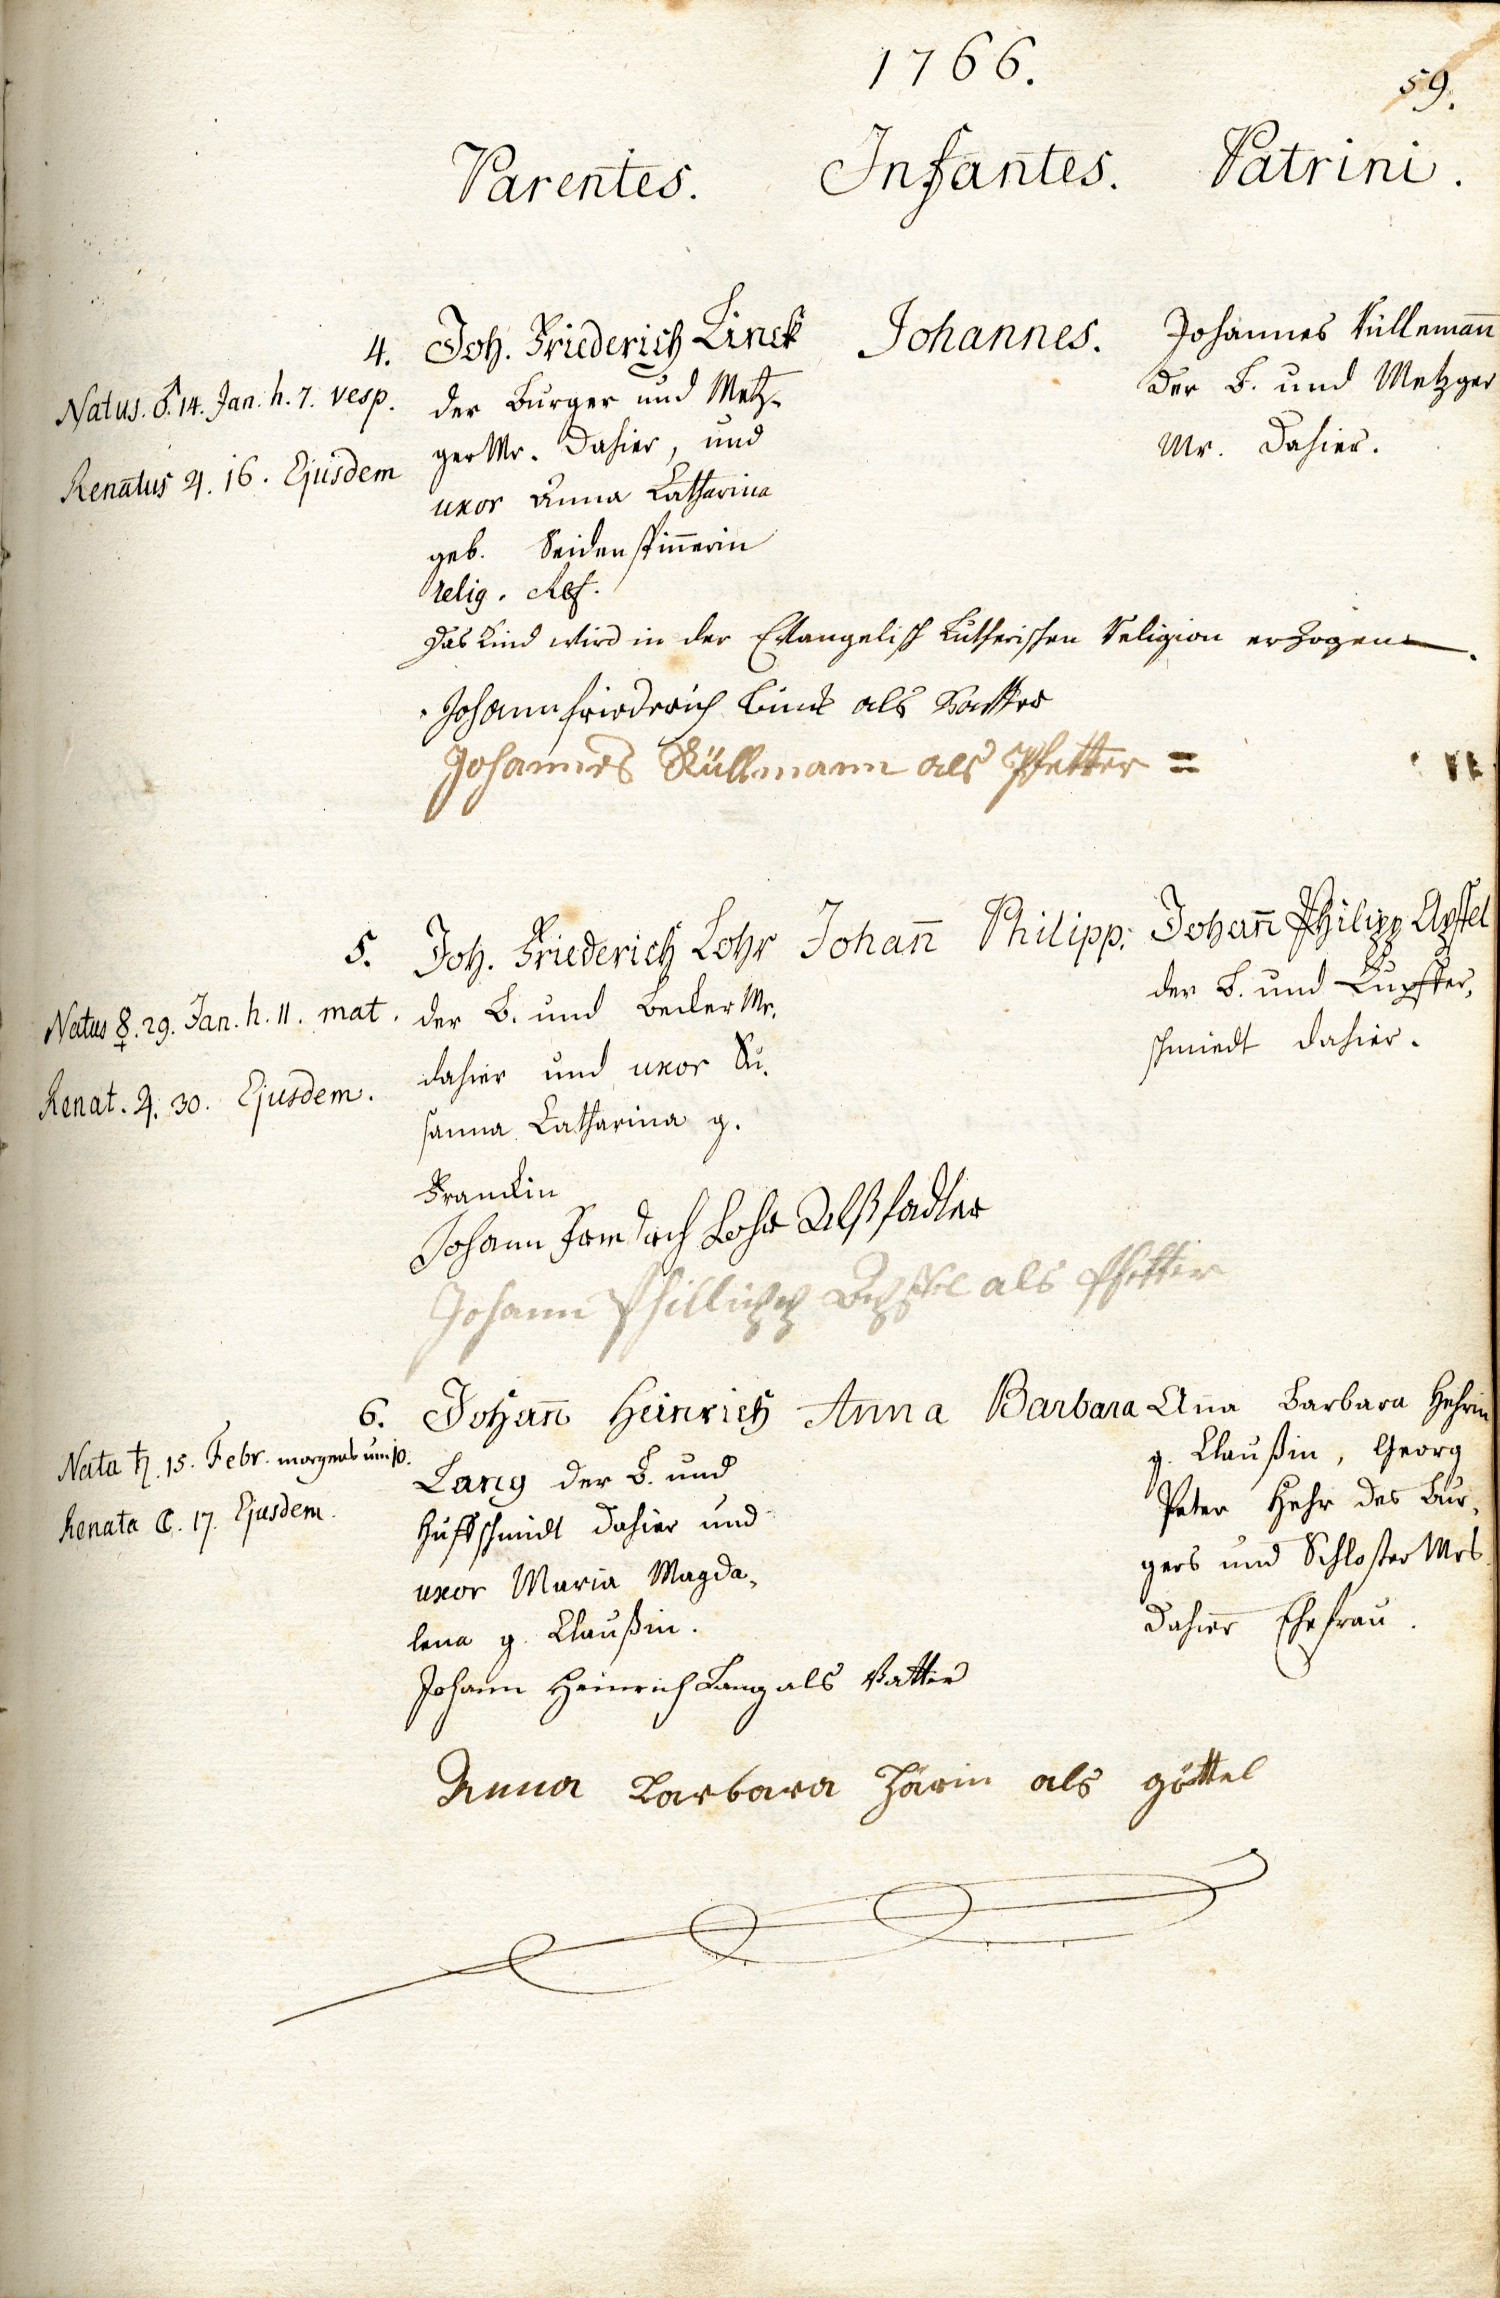 1766.
59.
Parentes. Infantes. Patrini.
4. Joh. Friederich Linck
Natus. ♂. 14. Jan. h. 7. vesp.
Renatus ♃. 16. Ejusdem
der Burger und Metz-
ger Mr. dahier, und
uxor Anna Catharina
geb. Seidenspinnerin
relig. Ref.
Johannes.
Johannes Küllemañ
der B. und Metzger
Mr. dahier.
Das Kind wird in der Evangelisch Lutherischen Religion erzogen.
Johann friedrich Linck als Vatter
Johannes Küllmann als Pfetter =
5. Joh. Friederich Lohr
Natus ☿. 29. Jan. h. 11. mat.
Renat. ♃. 30. Ejusdem.
der B. und Becker Mr.
dahier und uxor Su-
sanna Catharina g.
Franckin
Johañ Philipp.
Johañ Philipp Apffel
der B. und Kupffer-
schmiedt dahier.
Johann Friedrich Lohr Alß fadter
Johann Phillipp Apffel als Pfetter
6. Johañ Heinrich
Nata ♄. 15. Febr. morgens um 10.
Renata ☾. 17. Ejusdem.
Lang der B. und
Huffschmidt dahier und
uxor Maria Magda-
lena g. Claußin.
Anna Barbara
Aña Barbara Hehrin
g. Claußin, Georg
Peter Hehr des Bur-
gers und Schloßer Mrs
dahier Ehefrau.
Johann Heinrich Lang als Vatter
Anna Barbara Härin als göttel